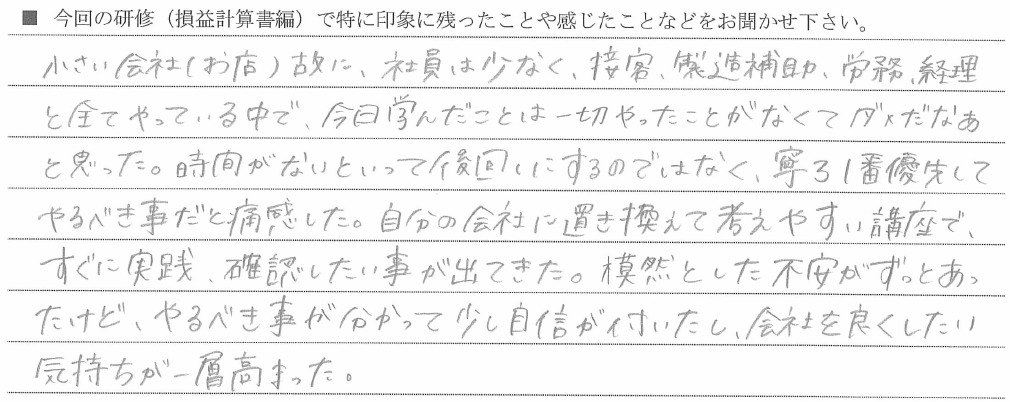 ■ 今回の研修（損益計算書編）で特に印象に残ったことや感じたことなどをお聞かせ下さい。
小さい会社(お店)故に、社員は少なく、接客、製造補助、労務、経理
と全てやっている中で、今回学んだことは一切やったことがなくてダメだなぁ
と思った。時間がないといって後回しにするのではなく、寧ろ1番優先して
やるべき事だと痛感した。自分の会社に置き換えて考えやすい講座で、
すぐに実践、確認したい事が出てきた。模然とした不安がずっとあっ
たけど、やるべき事が分かって少し自信が付いたし、会社を良くしたい
気持ちが一層高まった。